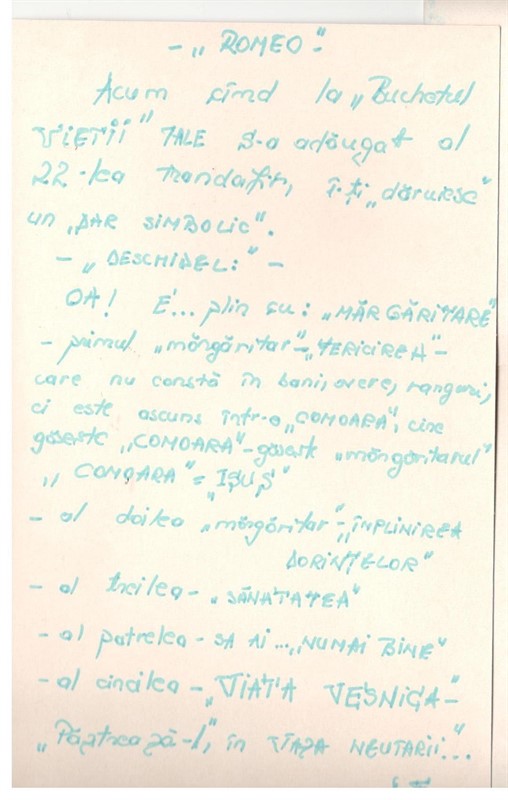 - „ ROMEO ” -
Acum cînd la „Buchetul
VIEȚII” TALE s-a adăugat al
22-lea trandafir, î-ți „dăruiesc”
un „DAR SIMBOLIC”.
- „ DESCHIDEL: ” -
OA! E... plin cu: „MĂRGĂRITARE”
- primul „mărgăritar” - „FERICIREA” -
care nu constă în bani, avere, ranguri,
ci este ascuns într-o „COMOARĂ”, cine
găsește „COMOARA” - găsește „mărgăritarul”
„ COMOARA ” = „ISUS”
- al doilea „mărgăritar” - „ÎNPLINIREA
DORINȚELOR”
- al treilea - „SĂNATATEA”
- al patrelea - SA AI ... „NUMAI BINE”
- al cincilea - „VIATA VEȘNICA” -
„Păstrează-l”, în „VAZA NEUITARII”...